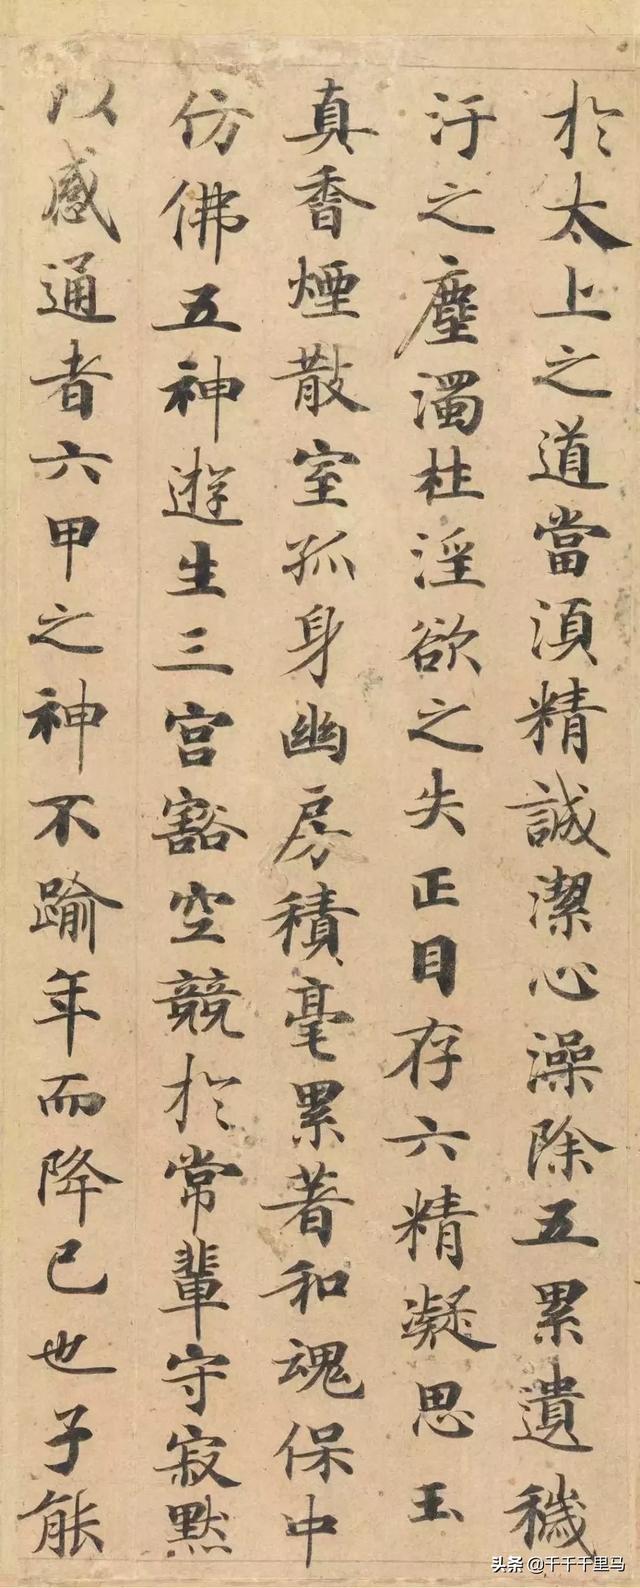 於太上之道當湏精誠潔心澡除五累遺穢
汙之塵濁杜淫欲之失正目存六精凝思玉
真香煙散室孤身幽房積毫累著和魂保中
仿佛五神遊生三宮豁空競於常輩守寂默
以感通者六甲之神不踰年而降已也子能
头条 @千千千里马